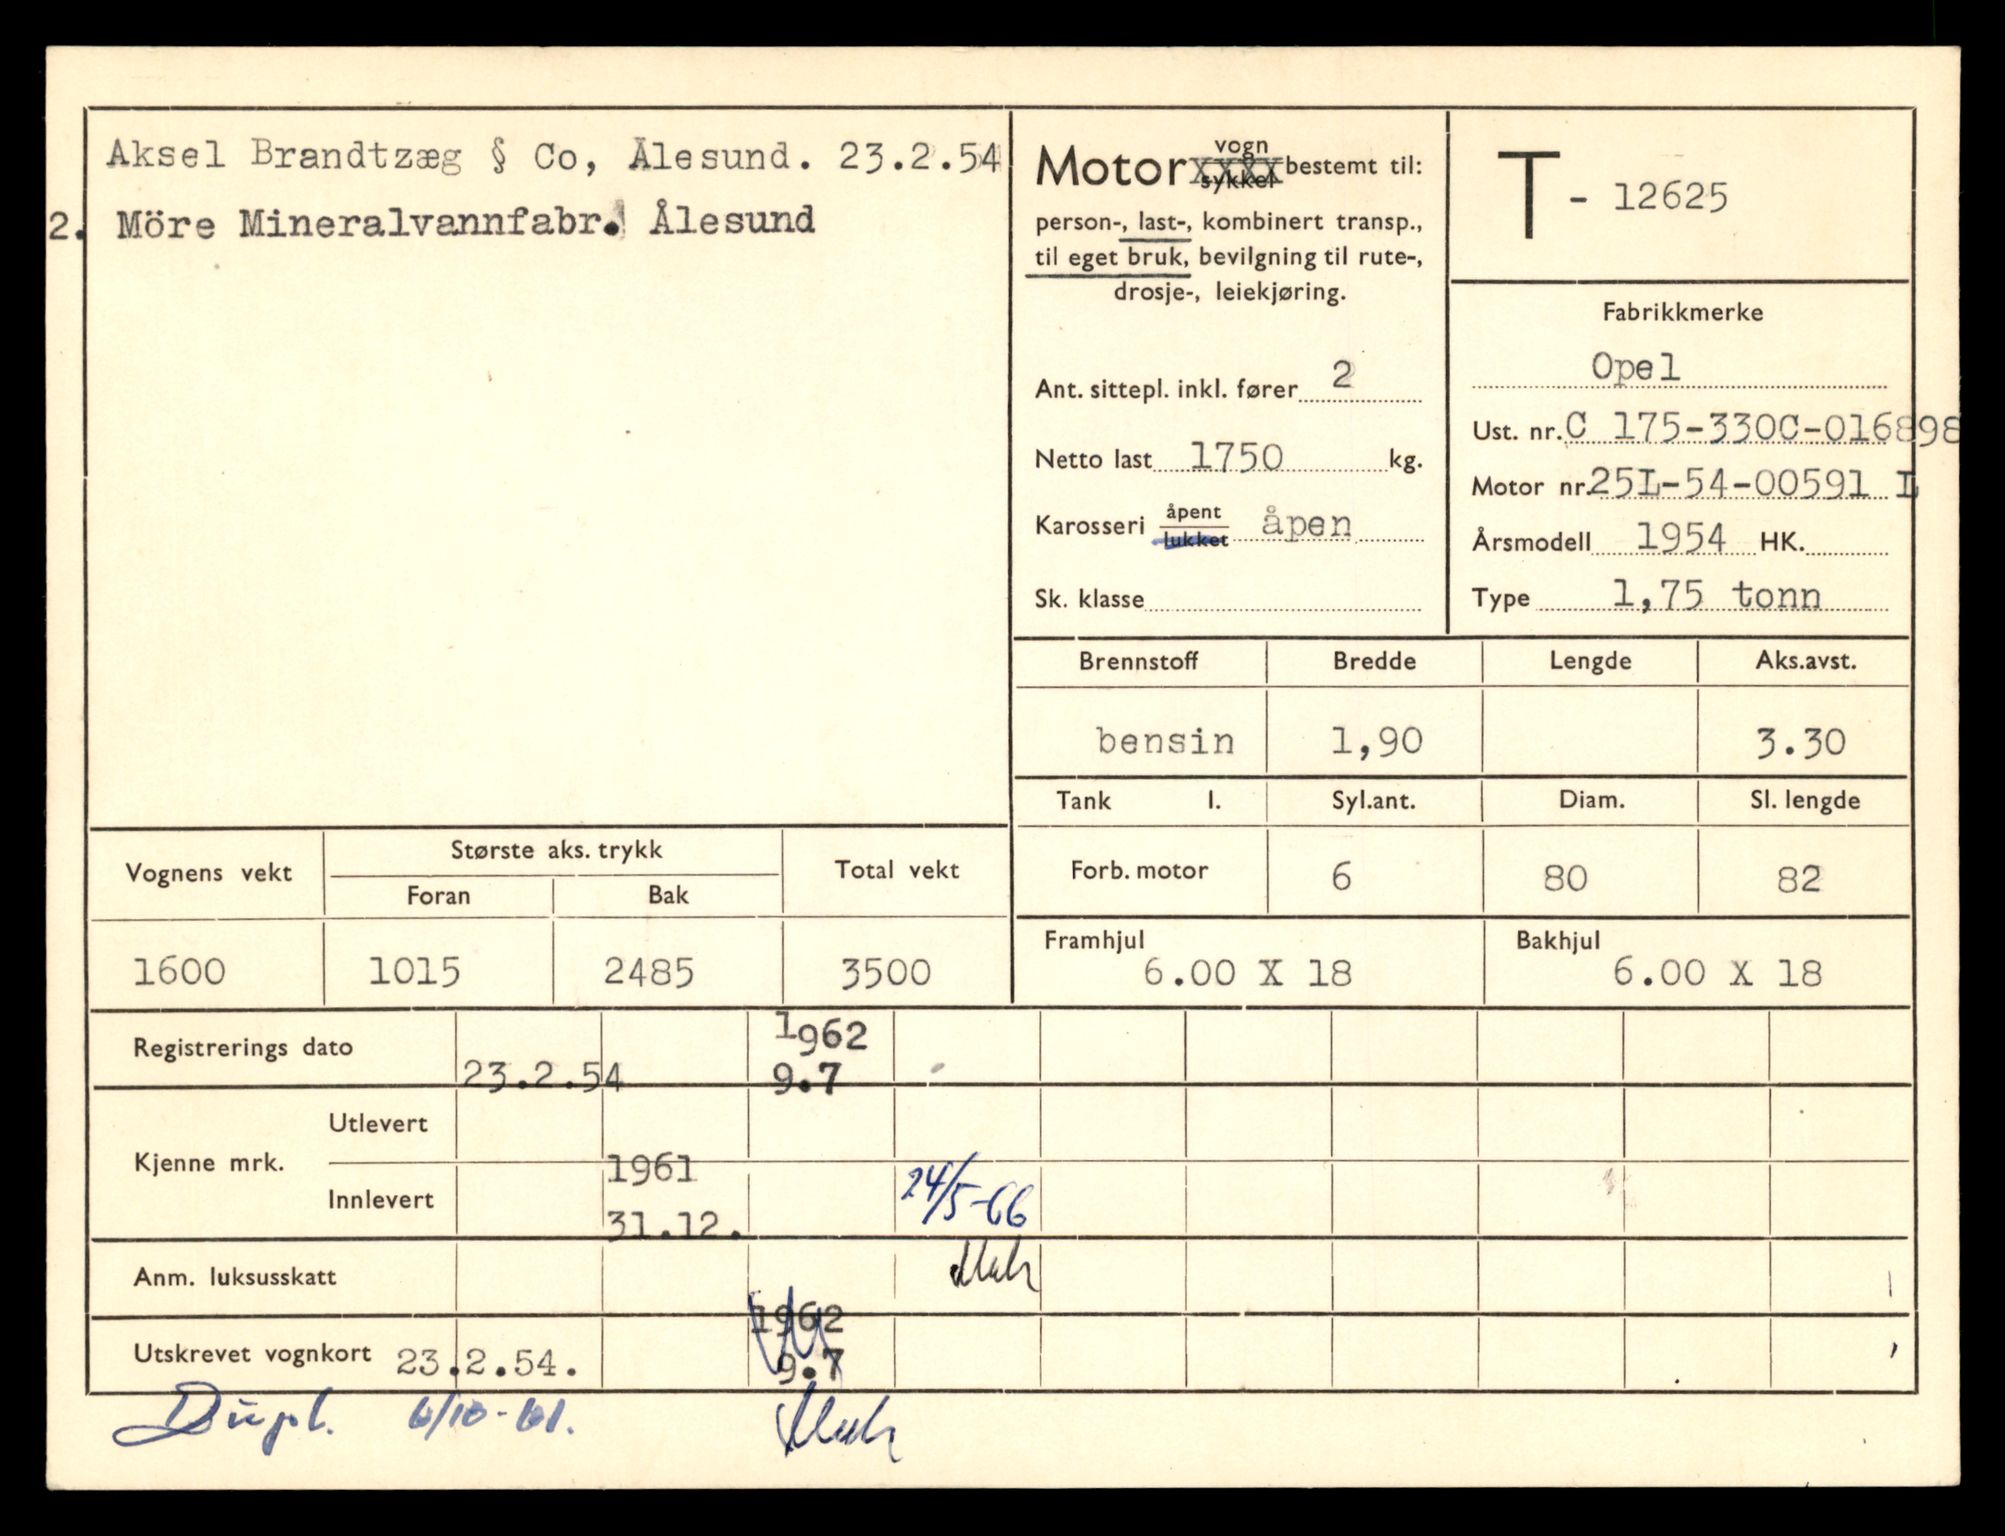 Aksel Brandtzæg § Co, Ålesund. 23.2.54
2. Möre Mineralvannfabr. Ålesund
Motor vogn sykkel bestemt til:
person-, last-, kombinert transp.,
til eget bruk, bevilgning til rute-,
drosje-, leiekjøring.
Ant. sittepl. inkl. fører 2
Netto last 1750 kg.
Karosseri åpent lukket åpen
Sk. klasse
T - 12625
Fabrikkmerke
Opel
Ust. nr. C 175-330C-016898
Motor nr. 25L-54-00591 L
Årsmodell 1954 HK.
Type 1,75 tonn
Brennstoff Bredde Lengde Aks.avst.
bensin 1,90 3.30
Tank l. Syl.ant. Diam. Sl. lengde
Forb. motor 6 80 82
Framhjul Bakhjul
6.00 X 18 6.00 X 18
Vognens vekt Største aks. trykk Total vekt
Foran Bak
1600 1015 2485 3500
Registrerings dato 23.2.54 1962 9.7
Kjenne mrk. Utlevert
Innlevert 1961 31.12. 24/5-66
Anm. luksusskatt
Utskrevet vognkort 23.2.54. 1962 9.7
Dupl. 6/10-61.